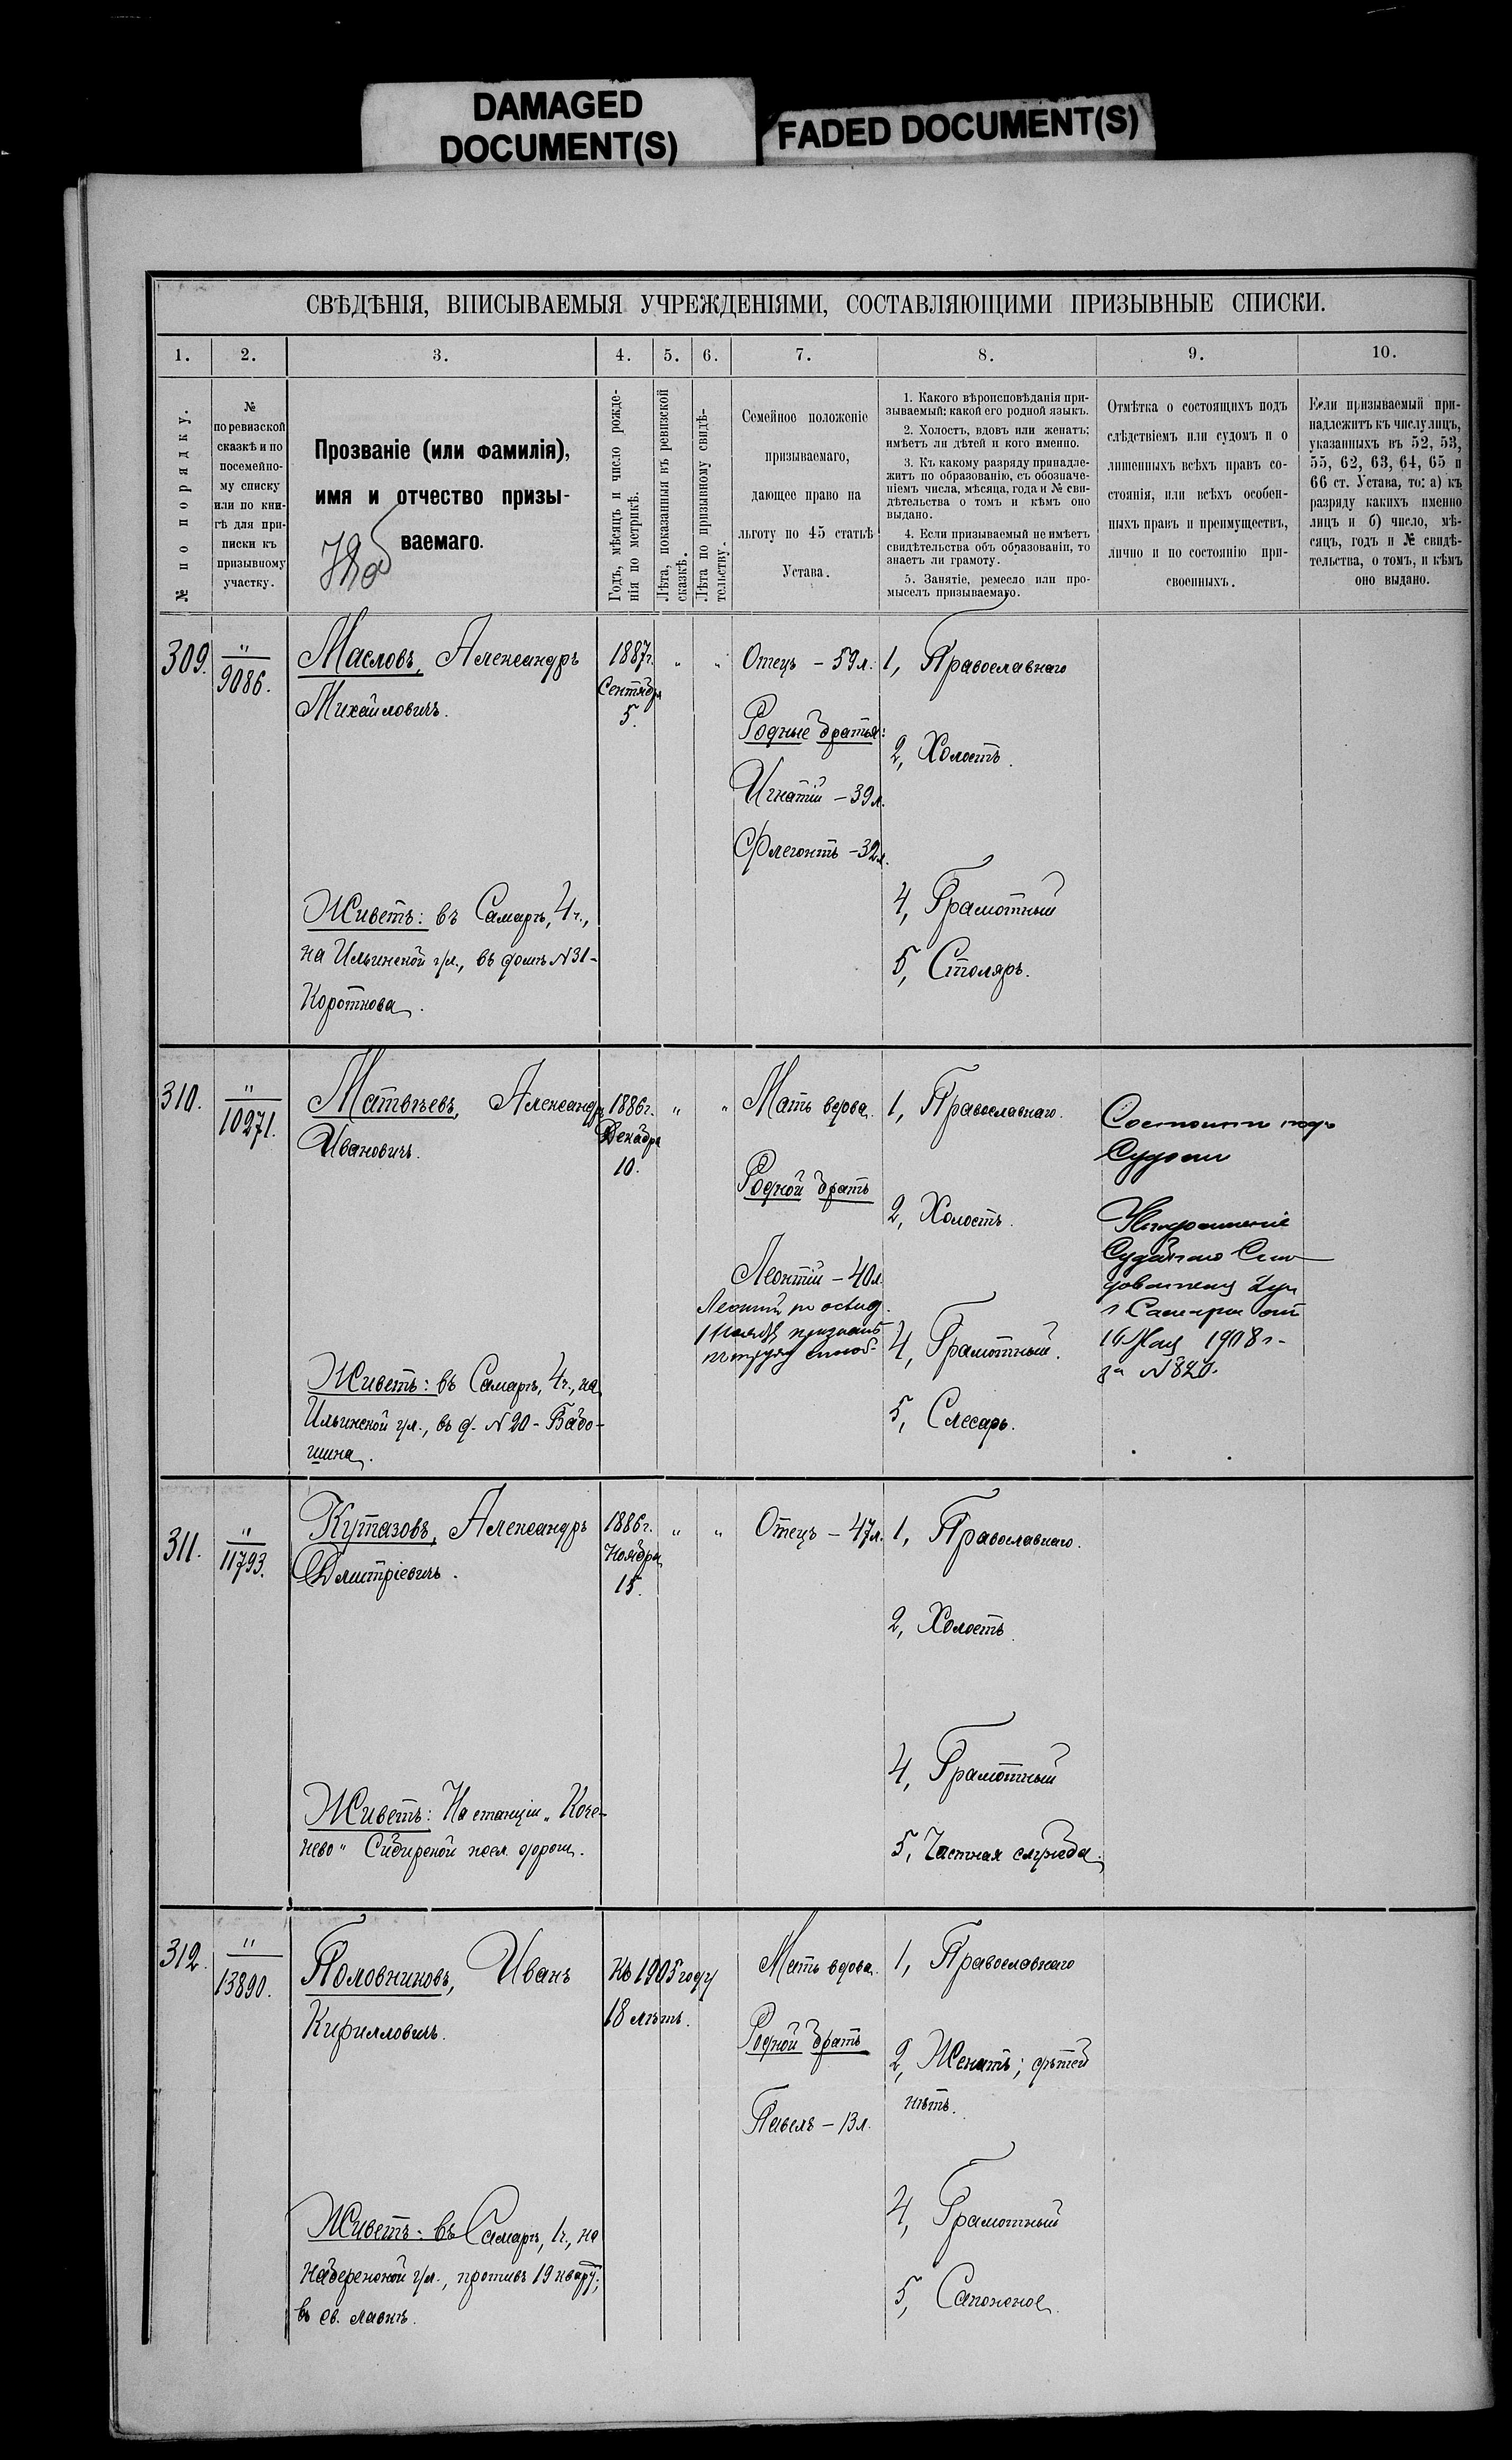 DAMAGED
DOCUMENT(S)
FADED DOCUMENT(S)
СВѢДѢНІЯ, ВПИСЫВАЕМЫЯ УЧРЕЖДЕНІЯМИ, СОСТАВЛЯЮЩИМИ ПРИЗЫВНЫЕ СПИСКИ.
1. 2. 3. 4. 5. 6. 7. 8. 9. 10.
№ по порядку.
№
по ревизской
сказкѣ и по
посемейно-
му списку
или по кни-
гѣ для при-
писки къ
призывному
участку.
Прозваніе (или фамилія),
имя и отчество призы-
ваемаго.
Годъ, мѣсяцъ и число рожде-
нія по метрикѣ.
Лѣта, показанныя въ ревизской
сказкѣ.
Лѣта по призывному свидѣ-
тельству.
Семейное положеніе
призываемаго,
дающее право на
льготу по 45 статьѣ
Устава.
1. Какого вѣроисповѣданія при-
зываемый; какой его родной языкъ.
2. Холостъ, вдовъ или женатъ;
имѣетъ ли дѣтей и кого именно.
3. Къ какому разряду принадле-
житъ по образованію, съ обозначе-
ніемъ числа, мѣсяца, года и № сви-
дѣтельства о томъ и кѣмъ оно
выдано.
4. Если призываемый не имѣетъ
свидѣтельства объ образованіи, то
знаетъ ли грамоту.
5. Занятіе, ремесло или про-
мыселъ призываемаго.
Отмѣтка о состоящихъ подъ
слѣдствіемъ или судомъ и о
лишенныхъ всѣхъ правъ со-
стоянія, или всѣхъ особен-
ныхъ правъ и преимуществъ,
лично и по состоянію при-
своенныхъ.
Если призываемый при-
надлежитъ къ числу лицъ,
указанныхъ въ 52, 53,
55, 62, 63, 64, 65 и
66 ст. Устава, то: а) къ
разряду какихъ именно
лицъ и б) число, мѣ-
сяцъ, годъ и № свидѣ-
тельства, о томъ, и кѣмъ
оно выдано.
309.
"
9086.
Масловъ, Александръ
Михайловичъ.
Живетъ: въ Самарѣ, 4ч.,
на Ильинской ул., въ домѣ N 31-
Короткова.
1887г.
Сентября
5.
" "
Отецъ - 59 л.
Родные братья:
Игнатій - 39 л.
Флегонтъ - 32 л.
1, Православнаго
2, Холостъ.
4, Грамотный
5, Столяръ.
310.
"
10271.
Матвѣевъ, Александръ
Ивановичъ.
Живетъ: въ Самарѣ, 4ч., на
Ильинской ул., въ д. N 20 - Бабо-
шина.
1886г.
Декабря
10.
" "
Мать вдова.
Родной братъ
Леонтій - 40 л.
Леонтій по освид.
признанъ
1, Православнаго.
2, Холостъ.
4, Грамотный.
5, Слесарь.
Состоитъ подъ
Судомъ
Судебнаго
16 Мая 1908 г.
за N 820.
311.
"
11793.
Кутазовъ, Александръ
Дмитріевичъ.
Живетъ: На станціи „Коче-
нево" Сибирской жел. дороги.
1886г.
Ноября
15.
" "
Отецъ - 47 л.
1, Православнаго.
2, Холостъ.
4, Грамотный
5, Частная служба.
312.
"
13890.
Половниковъ, Иванъ
Кирилловичъ.
Живетъ: въ Самарѣ, 1ч., на
Набережной ул., противъ 19 кварт.;
въ св. лавкѣ.
Къ 1905 году
18 лѣтъ.
Мать вдова.
Родной братъ
Павелъ - 13 л.
1, Православнаго
2, Женатъ; дѣтей
нѣтъ.
4, Грамотный
5,